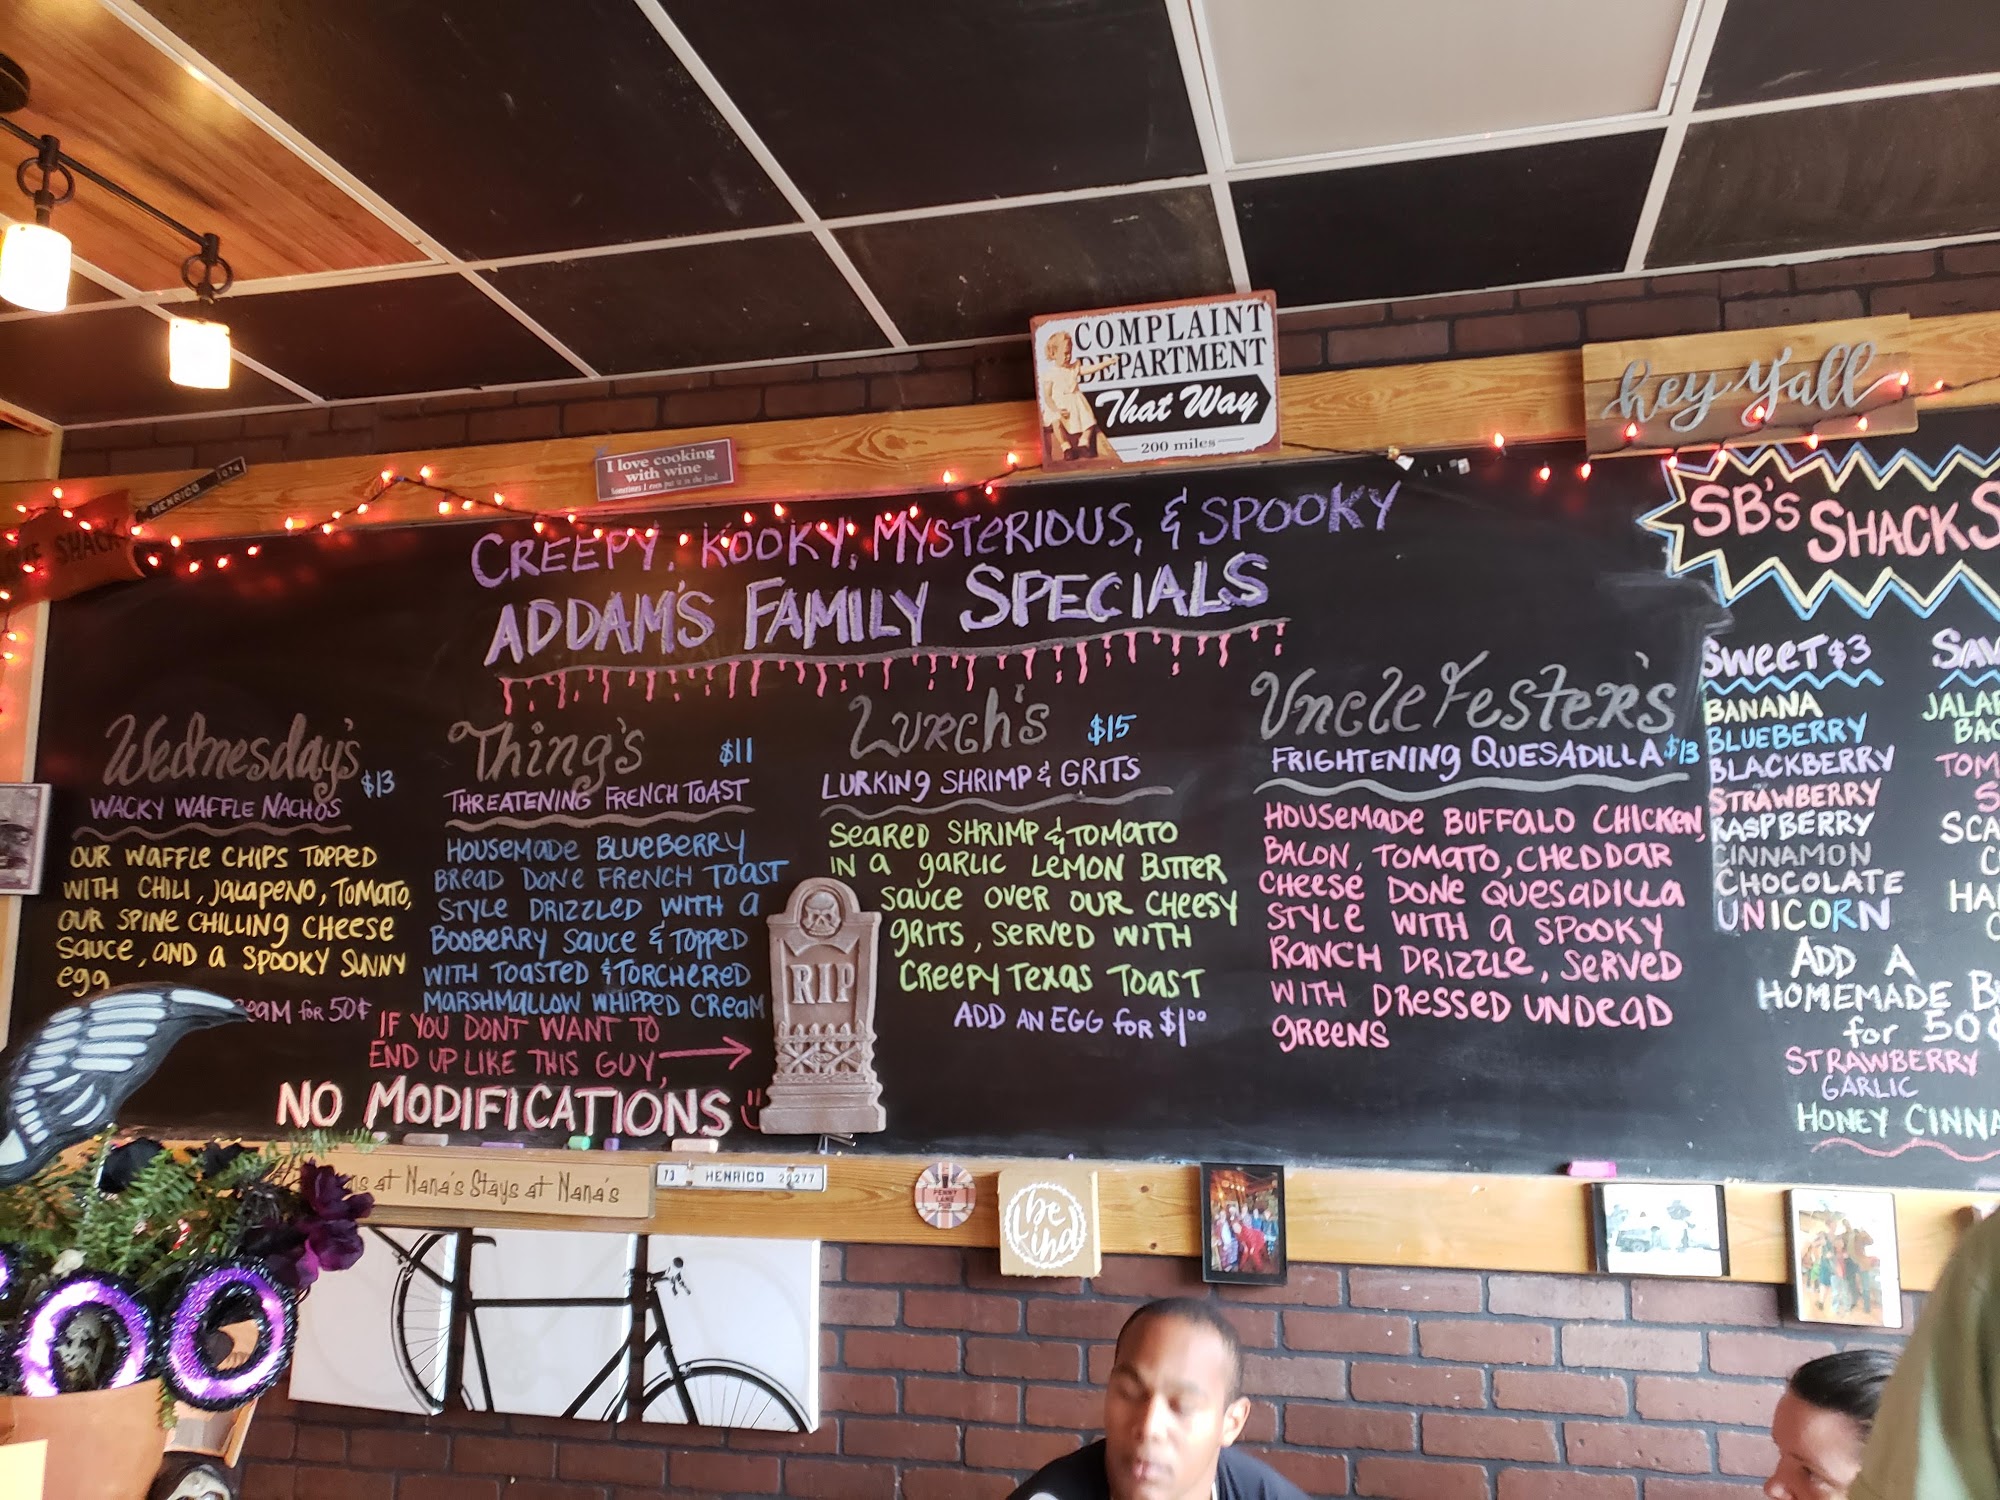 COMPLAINT
DEPARTMENT
That Way
200 miles
hey y'all
I love cooking
with wine
Sometimes I even put it in the food
HENRICO
SHACK
CREEPY, KOOKY, MYSTERIOUS, & SPOOKY
ADDAM'S FAMILY SPECIALS
Wednesday's $13
WACKY WAFFLE NACHOS
OUR WAFFLE CHIPS TOPPED
WITH CHILI, JALAPENO, TOMATO,
OUR SPINE CHILLING CHEESE
SAUCE, AND A SPOOKY SUNNY
egg
for 50¢
Thing's $11
THREATENING FRENCH TOAST
HOUSEMADE BLUEBERRY
BREAD DONE FRENCH TOAST
STYLE DRIZZLED WITH A
BOOBERRY SAUCE & TOPPED
WITH TOASTED & TORCHERED
MARSHMALLOW WHIPPED CREAM
IF YOU DONT WANT TO
END UP LIKE THIS GUY,
NO MODIFICATIONS
RIP
Lurch's $15
LURKING SHRIMP & GRITS
SEARED SHRIMP & TOMATO
IN A GARLIC LEMON BUTTER
SAUCE OVER OUR CHEESY
GRITS, SERVED WITH
CREEPY TEXAS TOAST
ADD AN EGG for $1.00
Uncle Fester's
FRIGHTENING QUESADILLA $13
HOUSEMADE BUFFALO CHICKEN,
BACON, TOMATO, CHEDDAR
CHEESE DONE QUESADILLA
STYLE WITH A SPOOKY
RANCH DRIZZLE, SERVED
WITH DRESSED UNDEAD
GREENS
SB'S SHACKS
SWEET $3
BANANA
BLUEBERRY
BLACKBERRY
STRAWBERRY
RASPBERRY
CINNAMON
CHOCOLATE
UNICORN
ADD A
HOMEMADE
for 50¢
STRAWBERRY
GARLIC
HONEY
at Nana's Stays at Nana's
73 HENRICO
PENNY LANE
PUB
be
kind